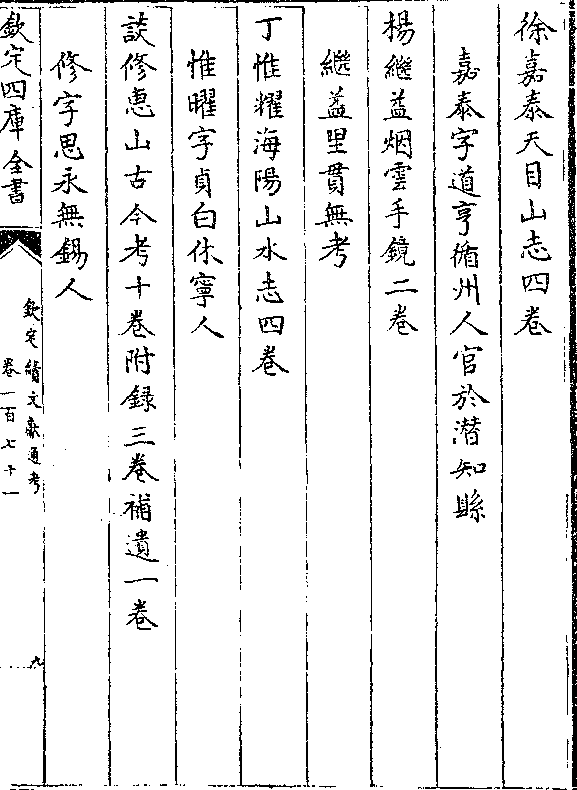 徐嘉泰天目山志四卷
嘉泰字道亨循州人官於潛知縣
楊繼益烟雲手鏡二卷
繼益里貫無考
丁惟耀海陽山水志四卷
惟曜字貞白休寧人
談修惠山古今考十卷附録三卷補遺一卷
修字思永無錫人
欽定四庫全書
欽定續文獻通考
卷一百七十一
九